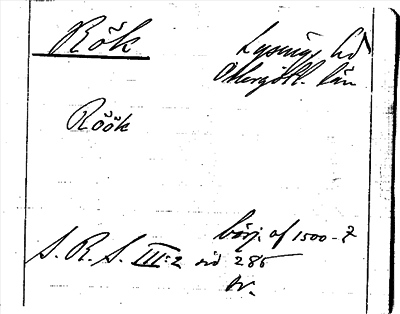 Rök
Lysings hd
Östergötl. län
Röök
börj. af 1500-t
S. R. S. III:2 sid 285
tr.